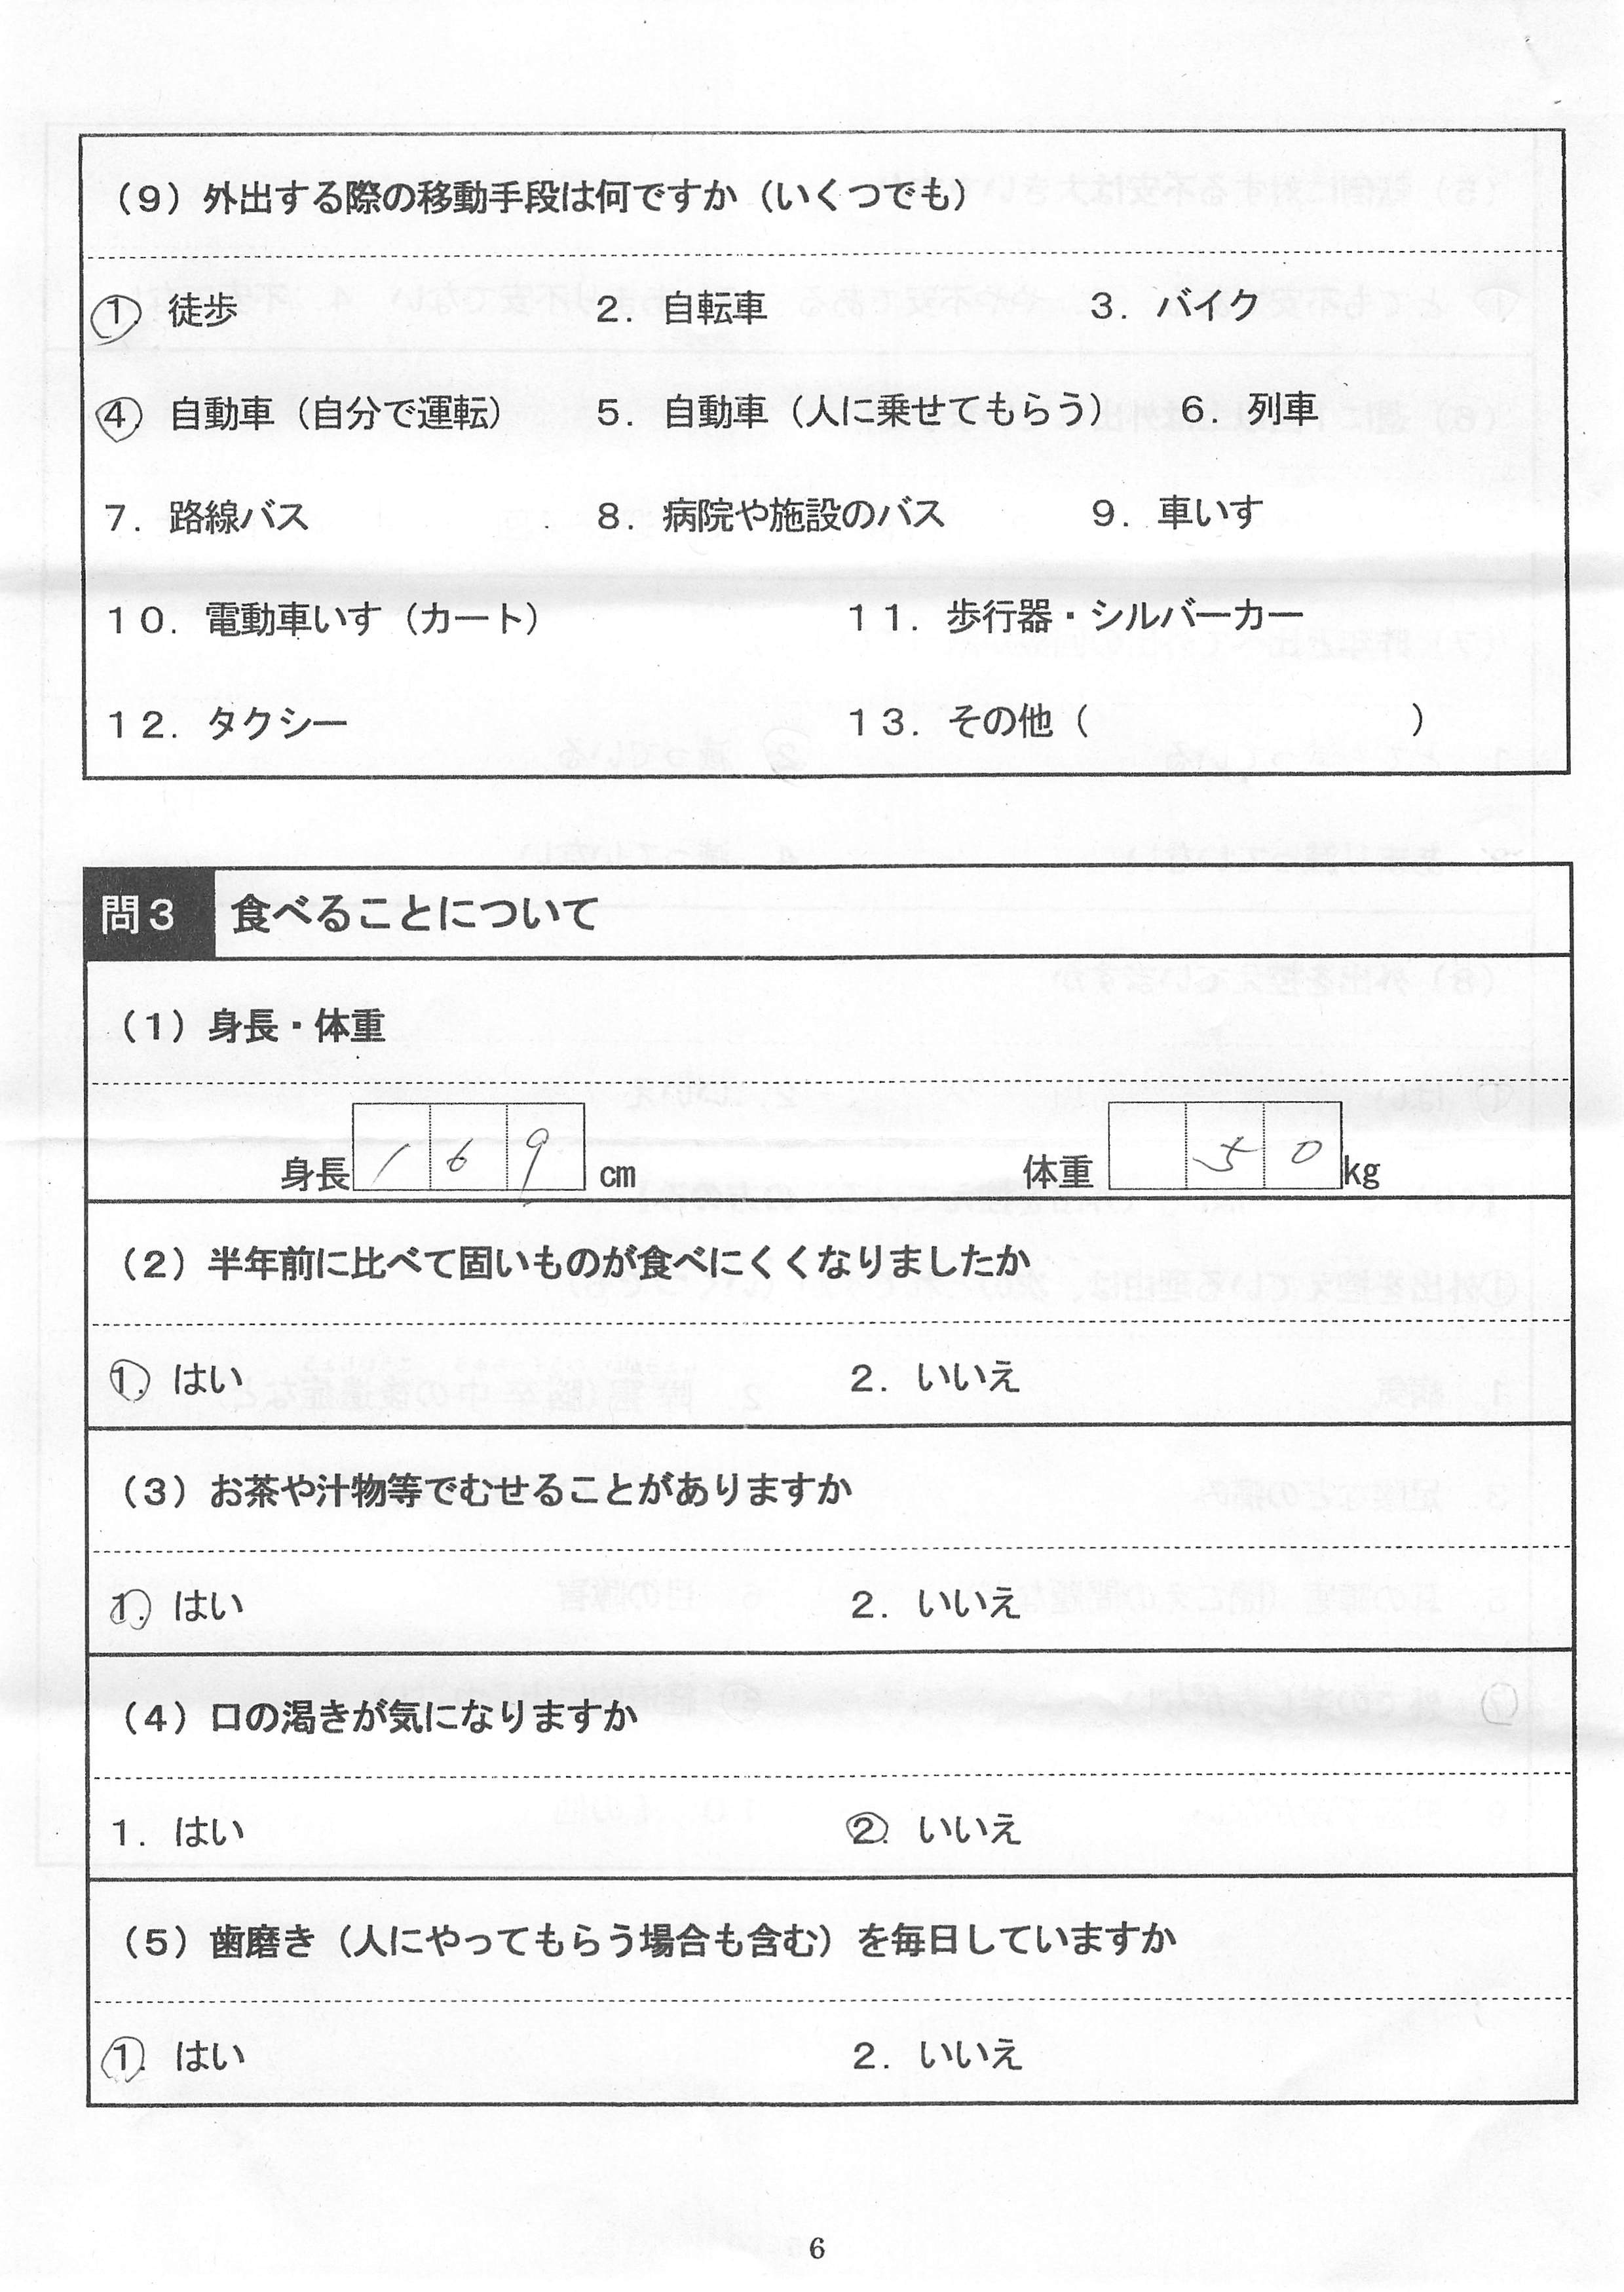 （9）外出する際の移動手段は何ですか（いくつでも）
1. 徒歩 2. 自転車 3. バイク
4. 自動車（自分で運転） 5. 自動車（人に乗せてもらう） 6. 列車
7. 路線バス 8. 病院や施設のバス 9. 車いす
10. 電動車いす（カート） 11. 歩行器・シルバーカー
12. タクシー 13. その他（ ）
問3 食べることについて
（1）身長・体重
身長 169 cm 体重 50 kg
（2）半年前に比べて固いものが食べにくくなりましたか
1. はい 2. いいえ
（3）お茶や汁物等でむせることがありますか
1. はい 2. いいえ
（4）口の渇きが気になりますか
1. はい 2. いいえ
（5）歯磨き（人にやってもらう場合も含む）を毎日していますか
1. はい 2. いいえ
6